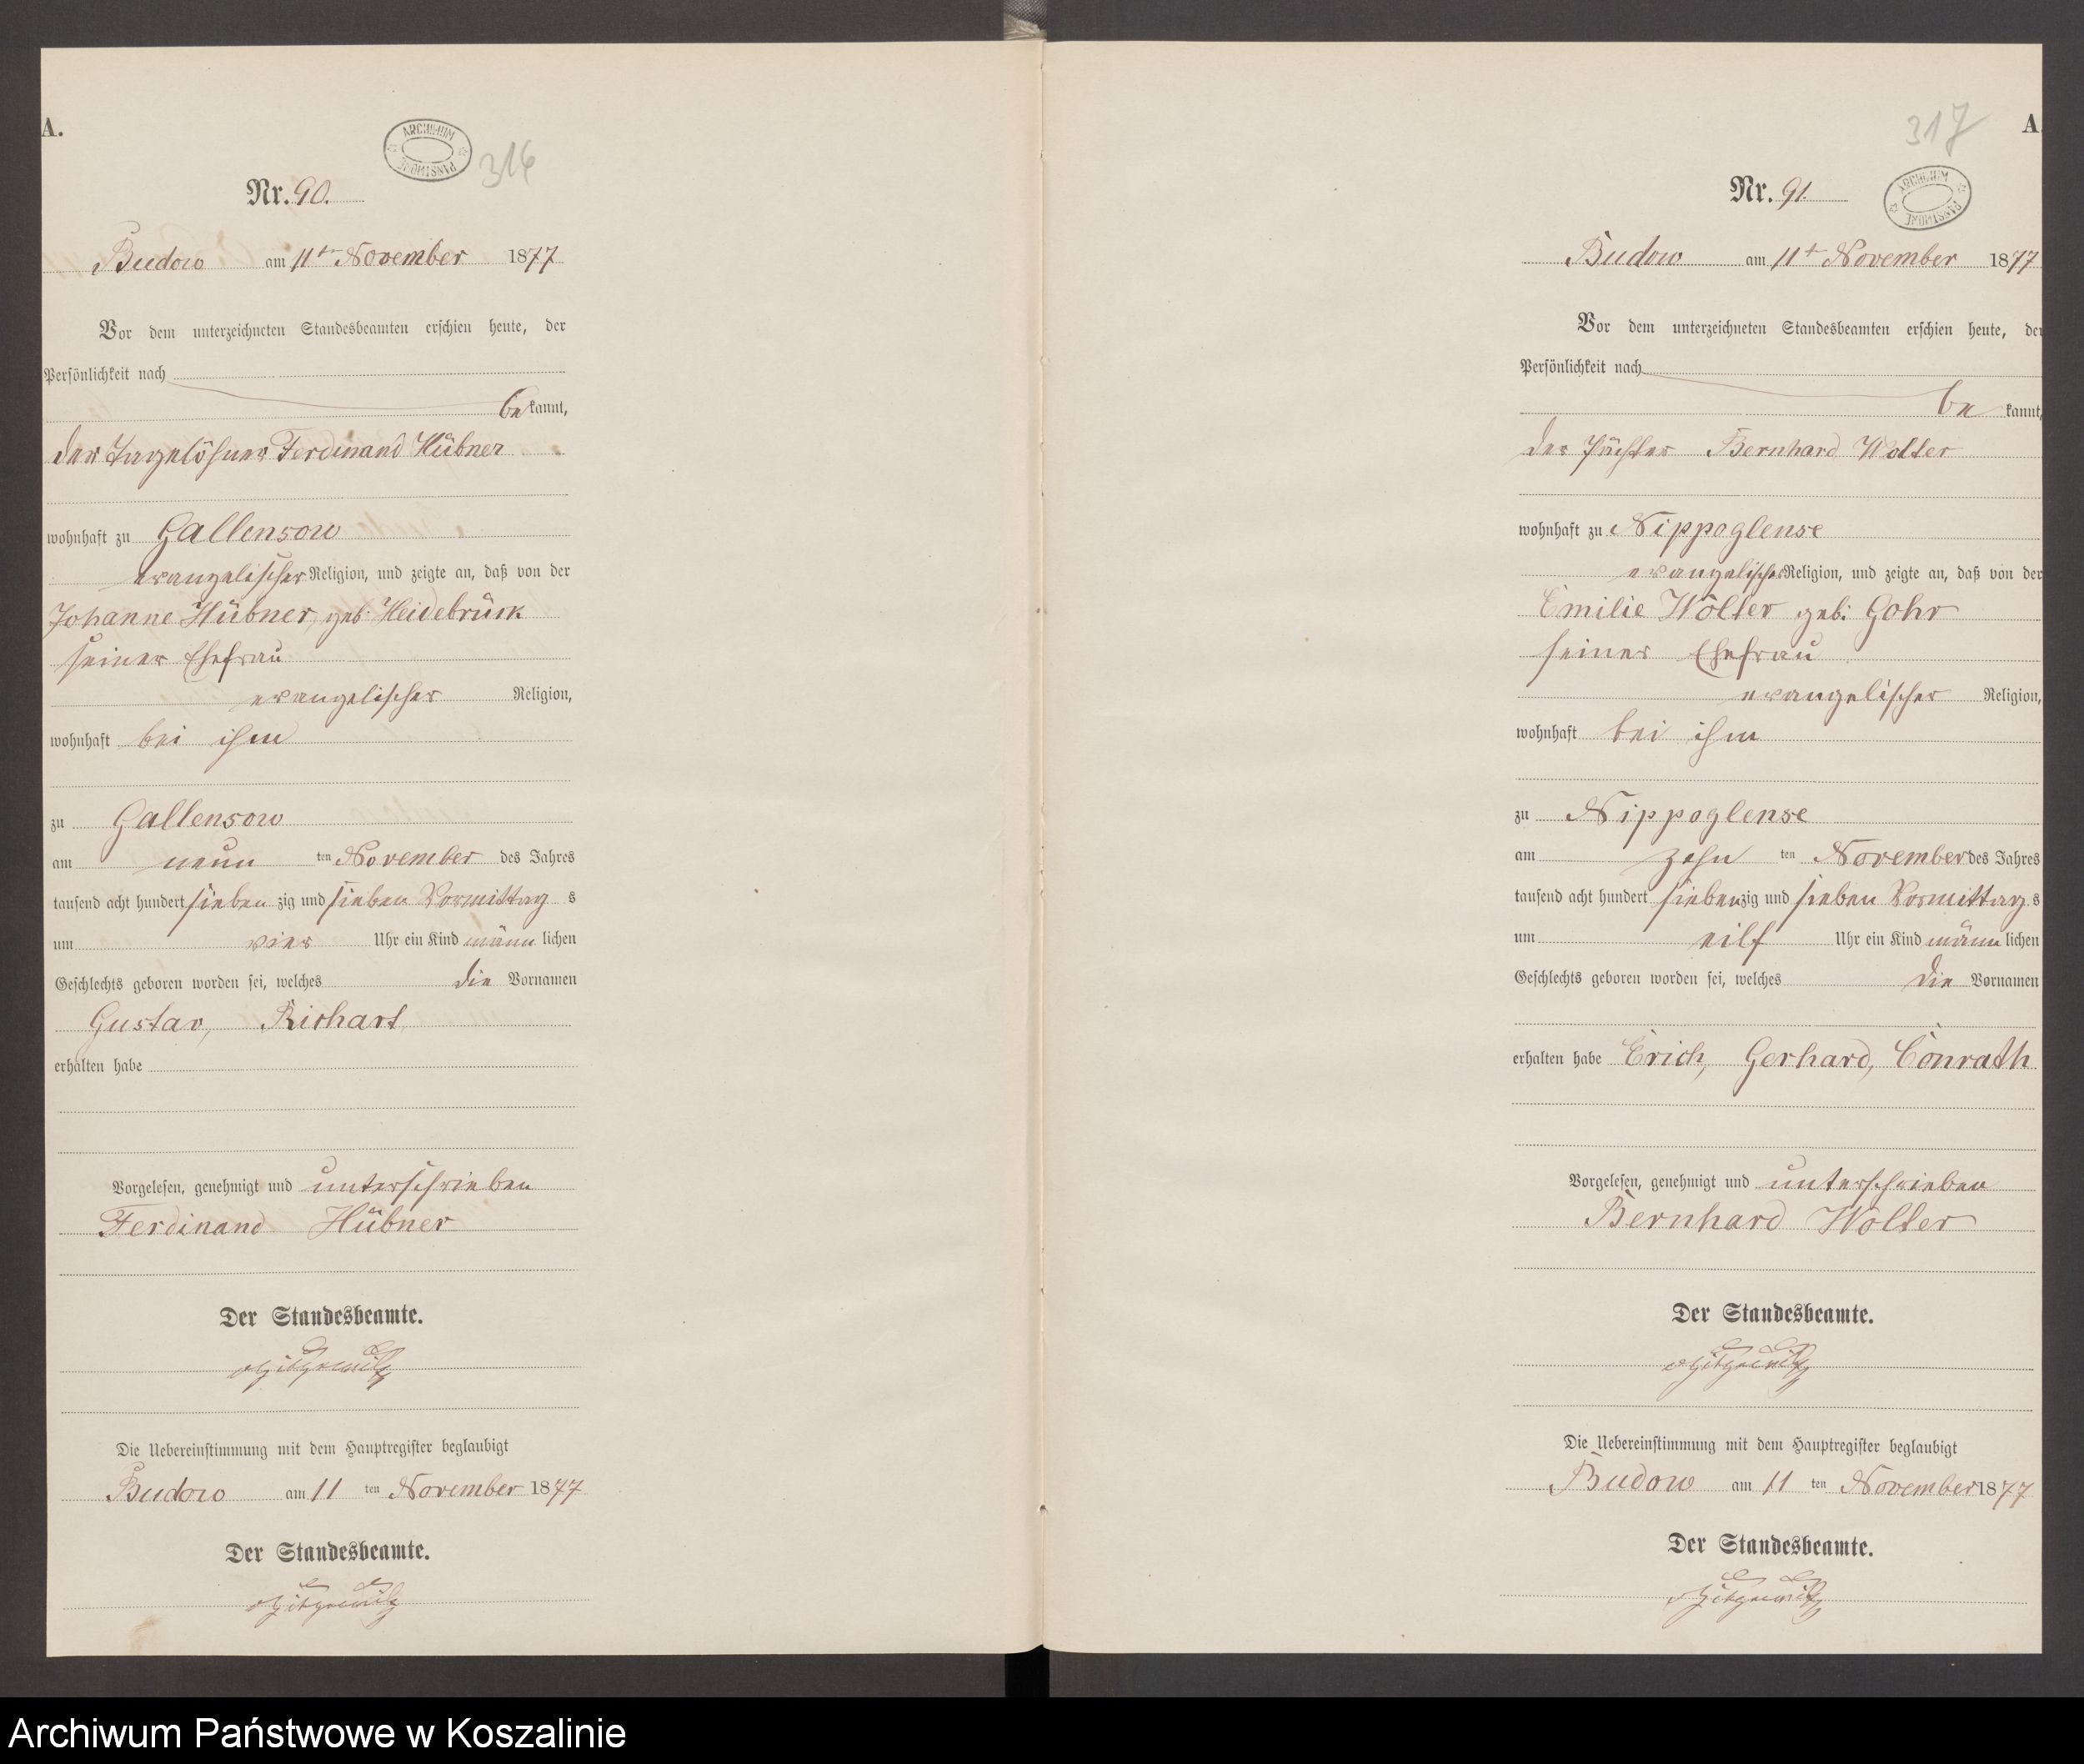 A.
ARCHIWUM PAŃSTWOWE
316
Nr. 90.
Budow am 11t November 1877
Vor dem unterzeichneten Standesbeamten erschien heute, der
Persönlichkeit nach
be kannt,
der Tagelöhner Ferdinand Hübner
wohnhaft zu Gallensow
evangelischer Religion, und zeigte an, daß von der
Johanne Hübner, geb. Heidebrück
seiner Ehefrau
evangelischer Religion,
wohnhaft bei ihm
zu Gallensow
am neun ten November des Jahres
tausend acht hundert sieben zig und sieben Vormittag s
um vier Uhr ein Kind männ lichen
Geschlechts geboren worden sei, welches die Vornamen
Gustav, Richart
erhalten habe
Vorgelesen, genehmigt und unterschrieben
Ferdinand Hübner
Der Standesbeamte.
Die Uebereinstimmung mit dem Hauptregister beglaubigt
Budow am 11 ten November 1877
Der Standesbeamte.
317
A
Nr. 91.
ARCHIWUM PAŃSTWOWE
Budow am 11t November 1877
Vor dem unterzeichneten Standesbeamten erschien heute, der
Persönlichkeit nach
be kannt,
der Pächter Bernhard Wolter
wohnhaft zu Nippoglense
evangelischer Religion, und zeigte an, daß von der
Emilie Wolter geb: Gohr
seiner Ehefrau
evangelischer Religion,
wohnhaft bei ihm
zu Nippoglense
am zehn ten November des Jahres
tausend acht hundert sieben zig und sieben Vormittag s
um eilf Uhr ein Kind männ lichen
Geschlechts geboren worden sei, welches die Vornamen
erhalten habe Erich, Gerhard, Conrath
Vorgelesen, genehmigt und unterschrieben
Bernhard Wolter
Der Standesbeamte.
Die Uebereinstimmung mit dem Hauptregister beglaubigt
Budow am 11 ten November 1877
Der Standesbeamte.
Archiwum Państwowe w Koszalinie